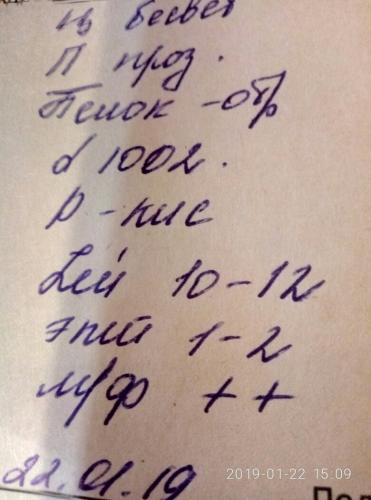 Ц бесцвет
П проз.
Белок - отр
d 1002.
р - кис
Лей 10-12
Эпит 1-2
м/ф ++
22.01.19
2019-01-22 15:09